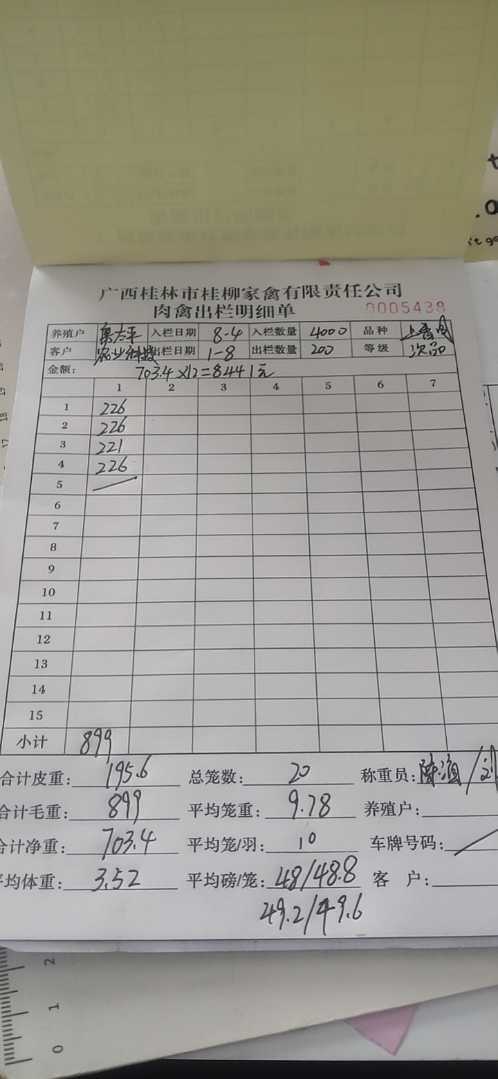 广西桂林市桂柳家禽有限责任公司
肉禽出栏明细单
0005438
养殖户 入栏日期 8-4 入栏数量 4000 品种
客户 农业科技 出栏日期 1-8 出栏数量 200 等级 次品
金额: 703.4×12=8441元
1 2 3 4 5 6 7
1 226
2 226
3 221
4 226
5
6
7
8
9
10
11
12
13
14
15
小计 899
合计皮重: 195.6 总笼数: 20 称重员:
合计毛重: 899 平均笼重: 9.78 养殖户:
合计净重: 703.4 平均笼/羽: 10 车牌号码:
平均体重: 3.52 平均磅/笼: 48/48.8 客 户:
49.2/49.6
2
1
0